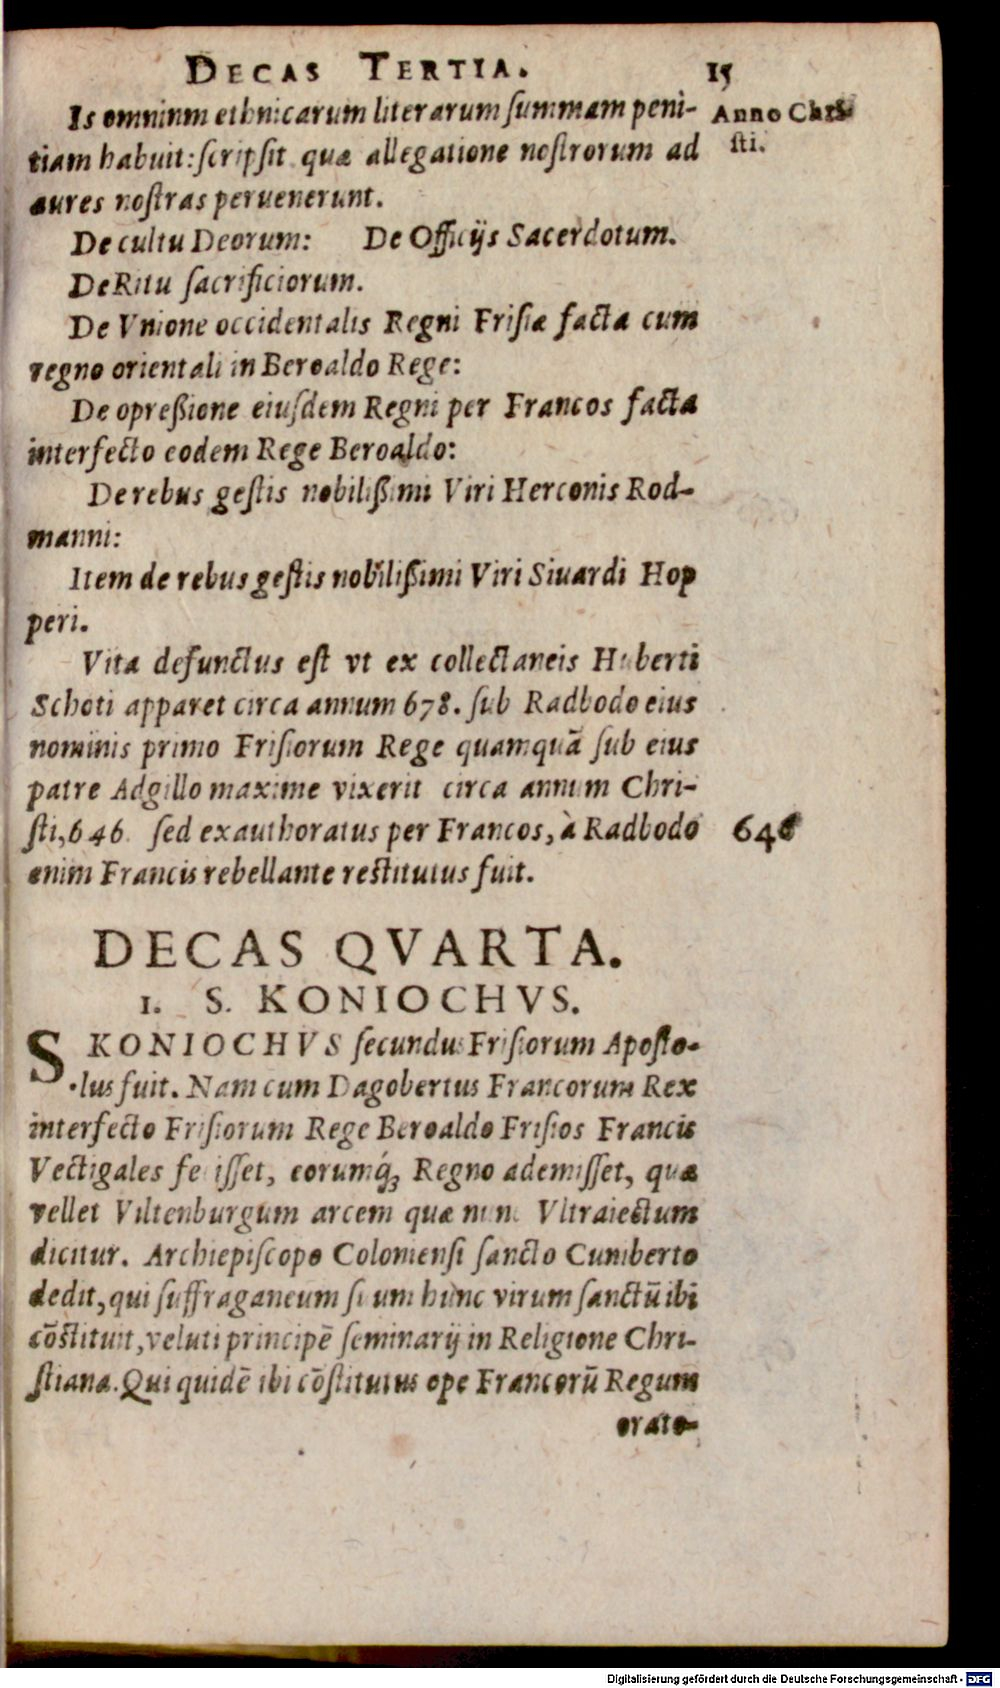 DECAS TERTIA. 15
Is omnium ethnicarum literarum ſummam peni-
tiam habuit: ſcripſit quæ allegatione noſtrorum ad
aures noſtras peruenerunt.
Anno Chri-
ſti.
De cultu Deorum: De Officijs Sacerdotum.
De Ritu ſacrificiorum.
De Vnione occidentalis Regni Friſiæ facta cum
regno orientali in Beroaldo Rege:
De opreßione eiuſdem Regni per Francos facta
interfecto eodem Rege Beroaldo:
De rebus geſtis nobilißimi Viri Herconis Rod-
manni:
Item de rebus geſtis nobilißimi Viri Siuardi Hop
peri.
Vita defunctus eſt vt ex collectaneis Huberti
Schoti apparet circa annum 678. ſub Radbodo eius
nominis primo Friſiorum Rege quamquā ſub eius
patre Adgillo maxime vixerit circa annum Chri-
ſti, 646. ſed exauthoratus per Francos, à Radbodo 646
enim Francis rebellante reſtitutus fuit.
DECAS QVARTA.
1. S. KONIOCHVS.
S KONIOCHVS ſecundus Friſiorum Apoſto-
lus fuit. Nam cum Dagobertus Francorum Rex
interfecto Friſiorum Rege Beroaldo Friſios Francis
Vectigales feciſſet, eorumq́ꝫ Regno ademiſſet, quæ
vellet Viltenburgum arcem quæ nunc Vltraiectum
dicitur. Archiepiſcopo Colonienſi ſancto Cuniberto
dedit, qui ſuffraganeum ſuum hunc virum ſanctū ibi
cōſtituit, veluti principē ſeminarij in Religione Chri-
ſtiana. Qui quidē ibi cōſtitutus ope Francorū Regum
orato-
Digitalisierung gefördert durch die Deutsche Forschungsgemeinschaft - DFG